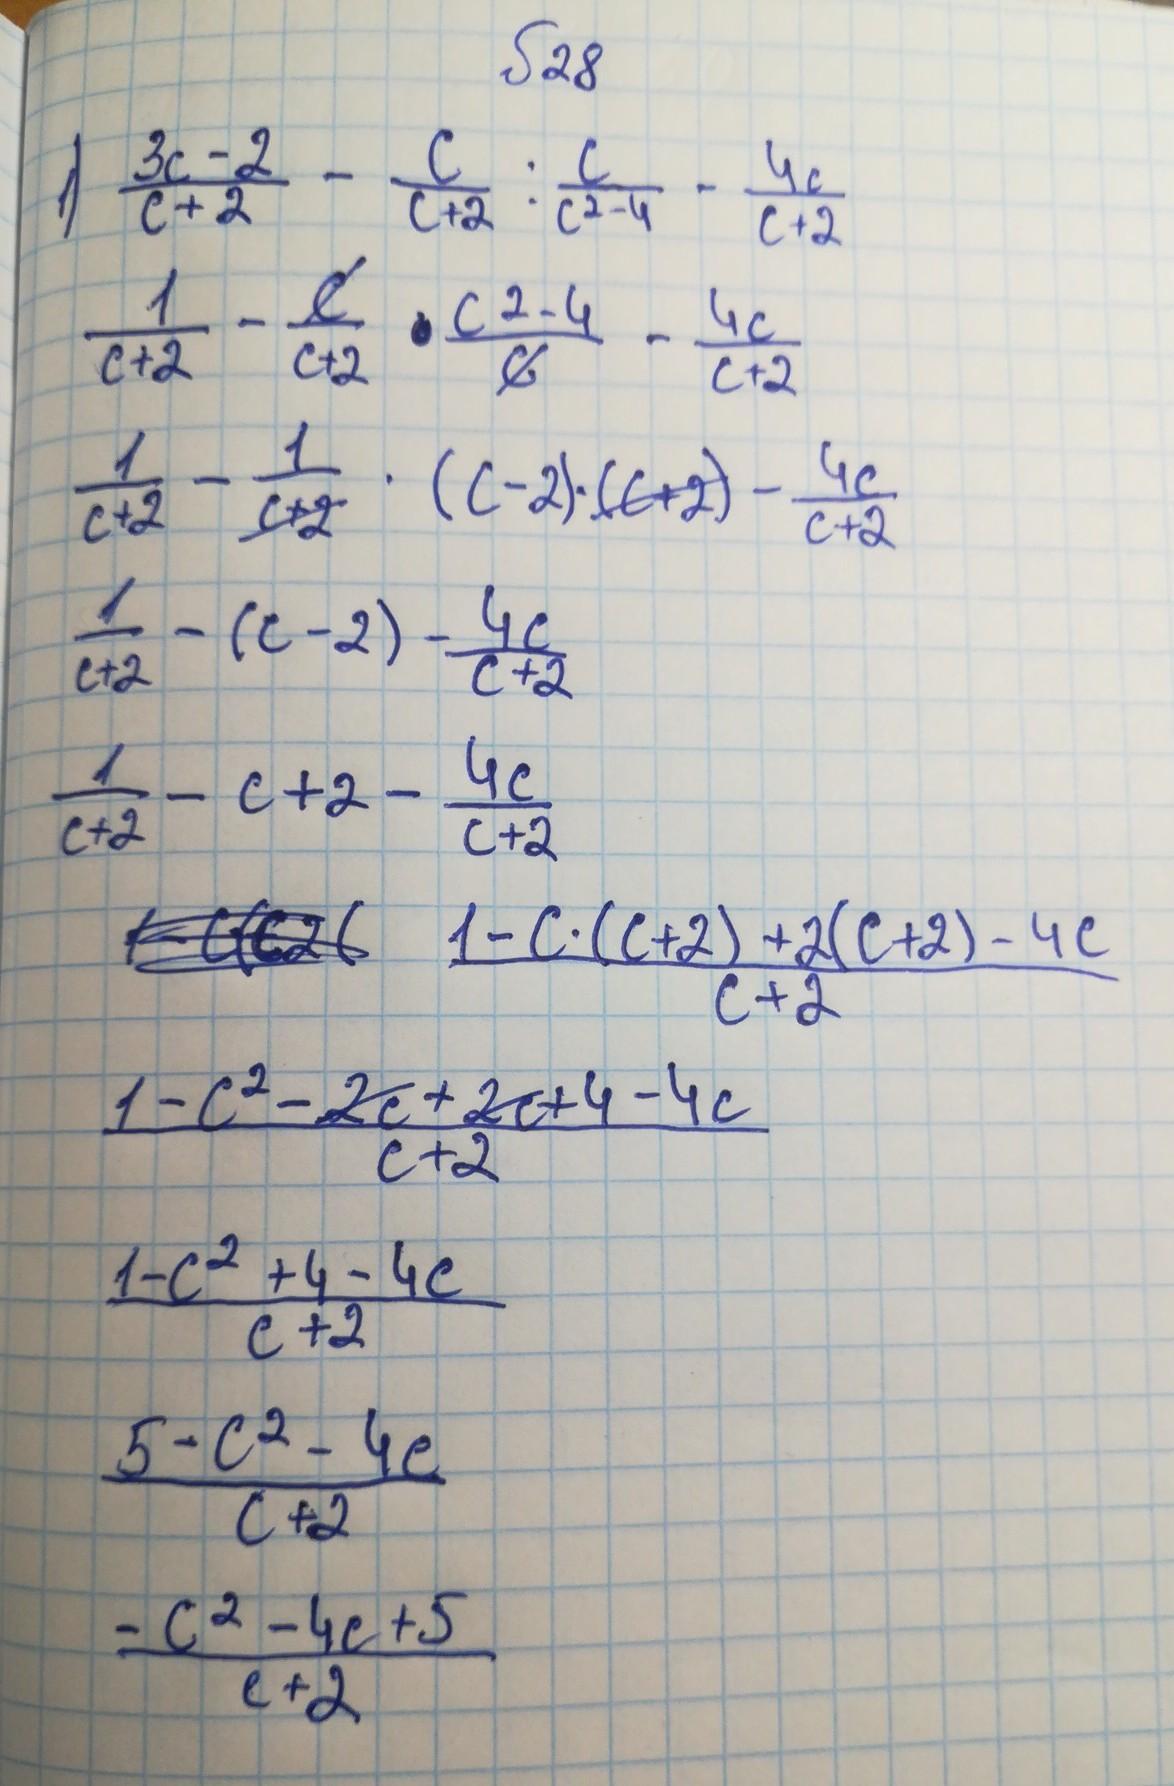 №28
1) (3c-2)/(c+2) - c/(c+2) : c/(c²-4) - 4c/(c+2)
1/(c+2) - c/(c+2) · (c²-4)/c - 4c/(c+2)
1/(c+2) - 1/(c+2) · (c-2)·(c+2) - 4c/(c+2)
1/(c+2) - (c-2) - 4c/(c+2)
1/(c+2) - c+2 - 4c/(c+2)
(1-c·(c+2)+2(c+2)-4c)/(c+2)
(1-c²-2c+2c+4-4c)/(c+2)
(1-c²+4-4c)/(c+2)
(5-c²-4c)/(c+2)
(-c²-4c+5)/(c+2)